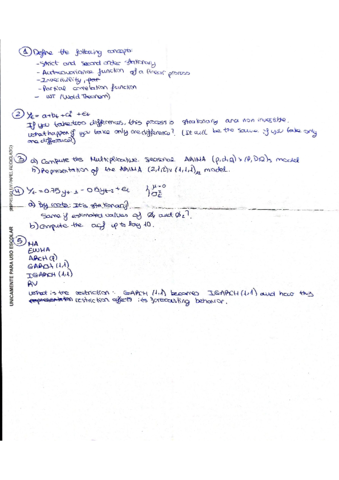 ① Define the following concepts:
- Strict and second order stationary
- Autocovariance function of a linear process
- Invertibility,
- Partial correlation function
- WT (Wold Theorem)
② Yt = a+bt + ct² + et
If you take two differences, this process is stationary and non invertible.
What happen if you take only one difference? (It will be the same if you take only one difference)
③ a) Compute the Multiplicative Seasonal ARIMA (p,d,q)x(P,D,Q)s model
b) Representation of the ARIMA (2,1,1)x(1,1,1)12 model.
a) By roots: It is stationary?
Same if estimated values of ϕ1 and ϕ2?
b) Compute the acf up to lag 10.
⑤ MA
EWMA
ARCH (q)
GARCH (1,1)
IGARCH (1,1)
RV
What is the restriction: GARCH (1,1) becomes IGARCH (1,1) and how this
restriction affects its forecasting behavior.
UNICAMENTE PARA USO ESCOLAR